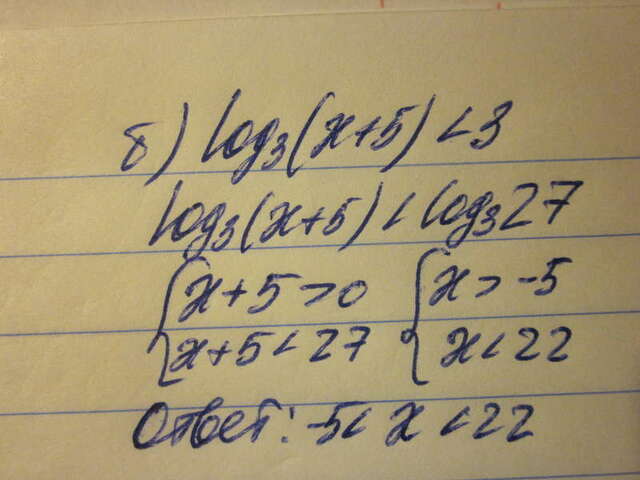 б) log₃(x+5) < 3
log₃(x+5) < log₃27
{ x+5 > 0 { x > -5
{ x+5 < 27 { x < 22
Ответ: -5 < x < 22